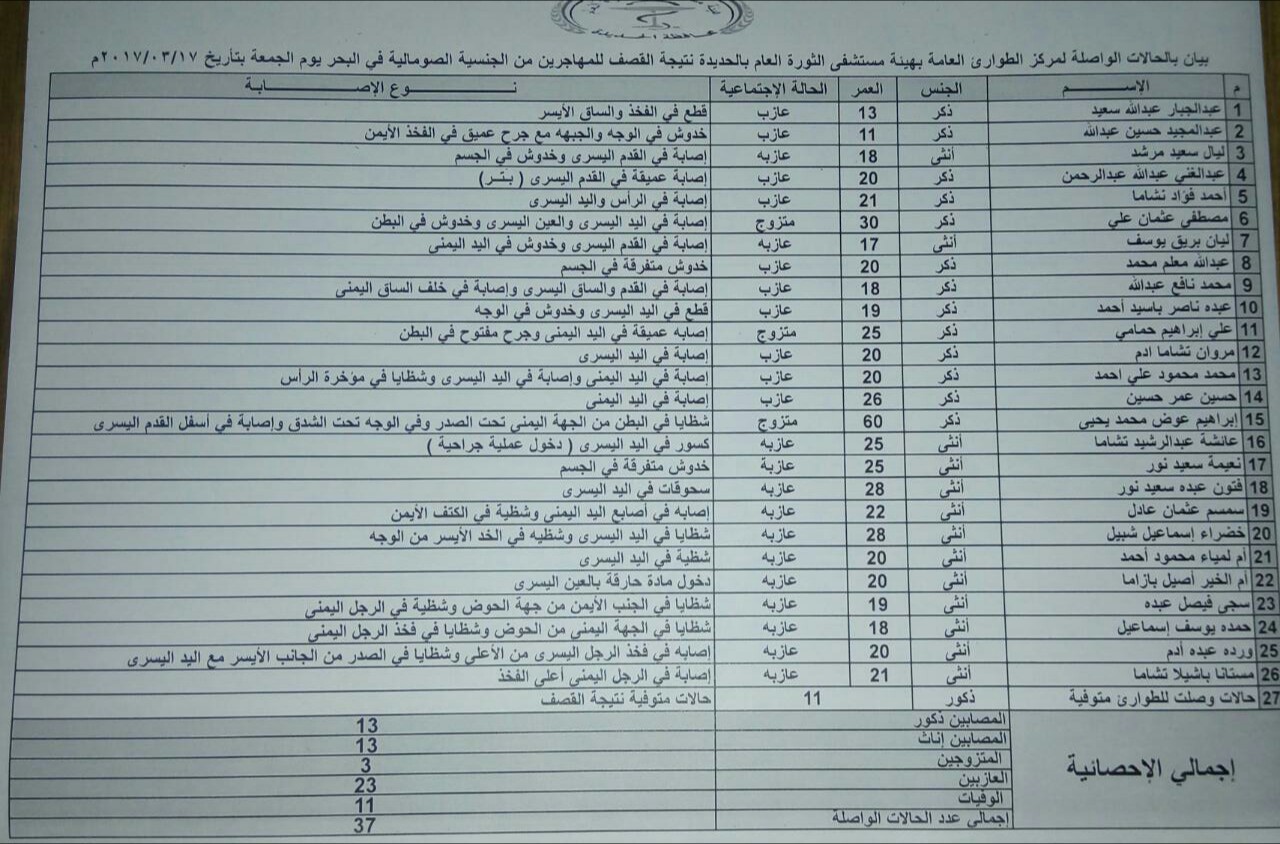 محافظة الحديدة
بيان بالحالات الواصلة لمركز الطوارئ العامة بهيئة مستشفى الثورة العام بالحديدة نتيجة القصف للمهاجرين من الجنسية الصومالية في البحر يوم الجمعة بتأريخ ٢٠١٧/٠٣/١٧م
م الإســـم الجنس العمر الحالة الإجتماعية نـــوع الإصـــابـة
1 عبدالجبار عبدالله سعيد ذكر 13 عازب قطع في الفخذ والساق الأيسر
2 عبدالمجيد حسين عبدالله ذكر 11 عازب خدوش في الوجه والجبهه مع جرح عميق في الفخذ الأيمن
3 ليال سعيد مرشد أنثى 18 عازبه إصابة في القدم اليسرى وخدوش في الجسم
4 عبدالغني عبدالله عبدالرحمن ذكر 20 عازب إصابة عميقة في القدم اليسرى ( بـتـر)
5 أحمد فؤاد تشاما ذكر 21 عازب إصابة في الرأس واليد اليسرى
6 مصطفى عثمان علي ذكر 30 متزوج إصابة في اليد اليسرى والعين اليسرى وخدوش في البطن
7 ليان بريق يوسف أنثى 17 عازبه إصابة في القدم اليسرى وخدوش في اليد اليمنى
8 عبدالله معلم محمد ذكر 20 عازب خدوش متفرقة في الجسم
9 محمد نافع عبدالله ذكر 18 عازب إصابة في القدم والساق اليسرى وإصابة في خلف الساق اليمنى
10 عبده ناصر باسيد أحمد ذكر 19 عازب قطع في اليد اليسرى وخدوش في الوجه
11 علي إبراهيم حمامي ذكر 25 متزوج إصابه عميقة في اليد اليمنى وجرح مفتوح في البطن
12 مروان تشاما ادم ذكر 20 عازب إصابة في اليد اليسرى
13 محمد محمود علي احمد ذكر 20 عازب إصابة في اليد اليمنى وإصابة في اليد اليسرى وشظايا في مؤخرة الرأس
14 حسين عمر حسين ذكر 26 عازب إصابة في اليد اليمنى
15 إبراهيم عوض محمد يحيى ذكر 60 متزوج شظايا في البطن من الجهة اليمنى تحت الصدر وفي الوجه تحت الشدق وإصابة في أسفل القدم اليسرى
16 عائشة عبدالرشيد تشاما أنثى 25 عازبه كسور في اليد اليسرى ( دخول عملية جراحية )
17 نعيمة سعيد نور أنثى 25 عازبة خدوش متفرقة في الجسم
18 فتون عبده سعيد نور أنثى 28 عازبه سحوقات في اليد اليسرى
19 سمسم عثمان عادل أنثى 22 عازبه إصابه في أصابع اليد اليمنى وشظية في الكتف الأيمن
20 خضراء إسماعيل شبيل أنثى 28 عازبه شظايا في اليد اليسرى وشظيه في الخد الأيسر من الوجه
21 أم لمياء محمود أحمد أنثى 20 عازبه شظية في اليد اليسرى
22 أم الخير أصيل بازاما أنثى 20 عازبه دخول مادة حارقة بالعين اليسرى
23 سجى فيصل عبده أنثى 19 عازبه شظايا في الجنب الأيمن من جهة الحوض وشظية في الرجل اليمنى
24 حمده يوسف إسماعيل أنثى 18 عازبه شظايا في الجهة اليمنى من الحوض وشظايا في فخذ الرجل اليمنى
25 ورده عبده أدم أنثى 20 عازبه إصابه في فخذ الرجل اليسرى من الأعلى وشظايا في الصدر من الجانب الأيسر مع اليد اليسرى
26 مستانا باشيلا تشاما أنثى 21 عازبه إصابة في الرجل اليمنى أعلى الفخذ
27 حالات وصلت للطوارئ متوفية ذكور 11 حالات متوفية نتيجة القصف
إجمالي الإحصائية
المصابين ذكور 13
المصابين إناث 13
المتزوجين 3
العازبين 23
الوفيات 11
إجمالي عدد الحالات الواصلة 37